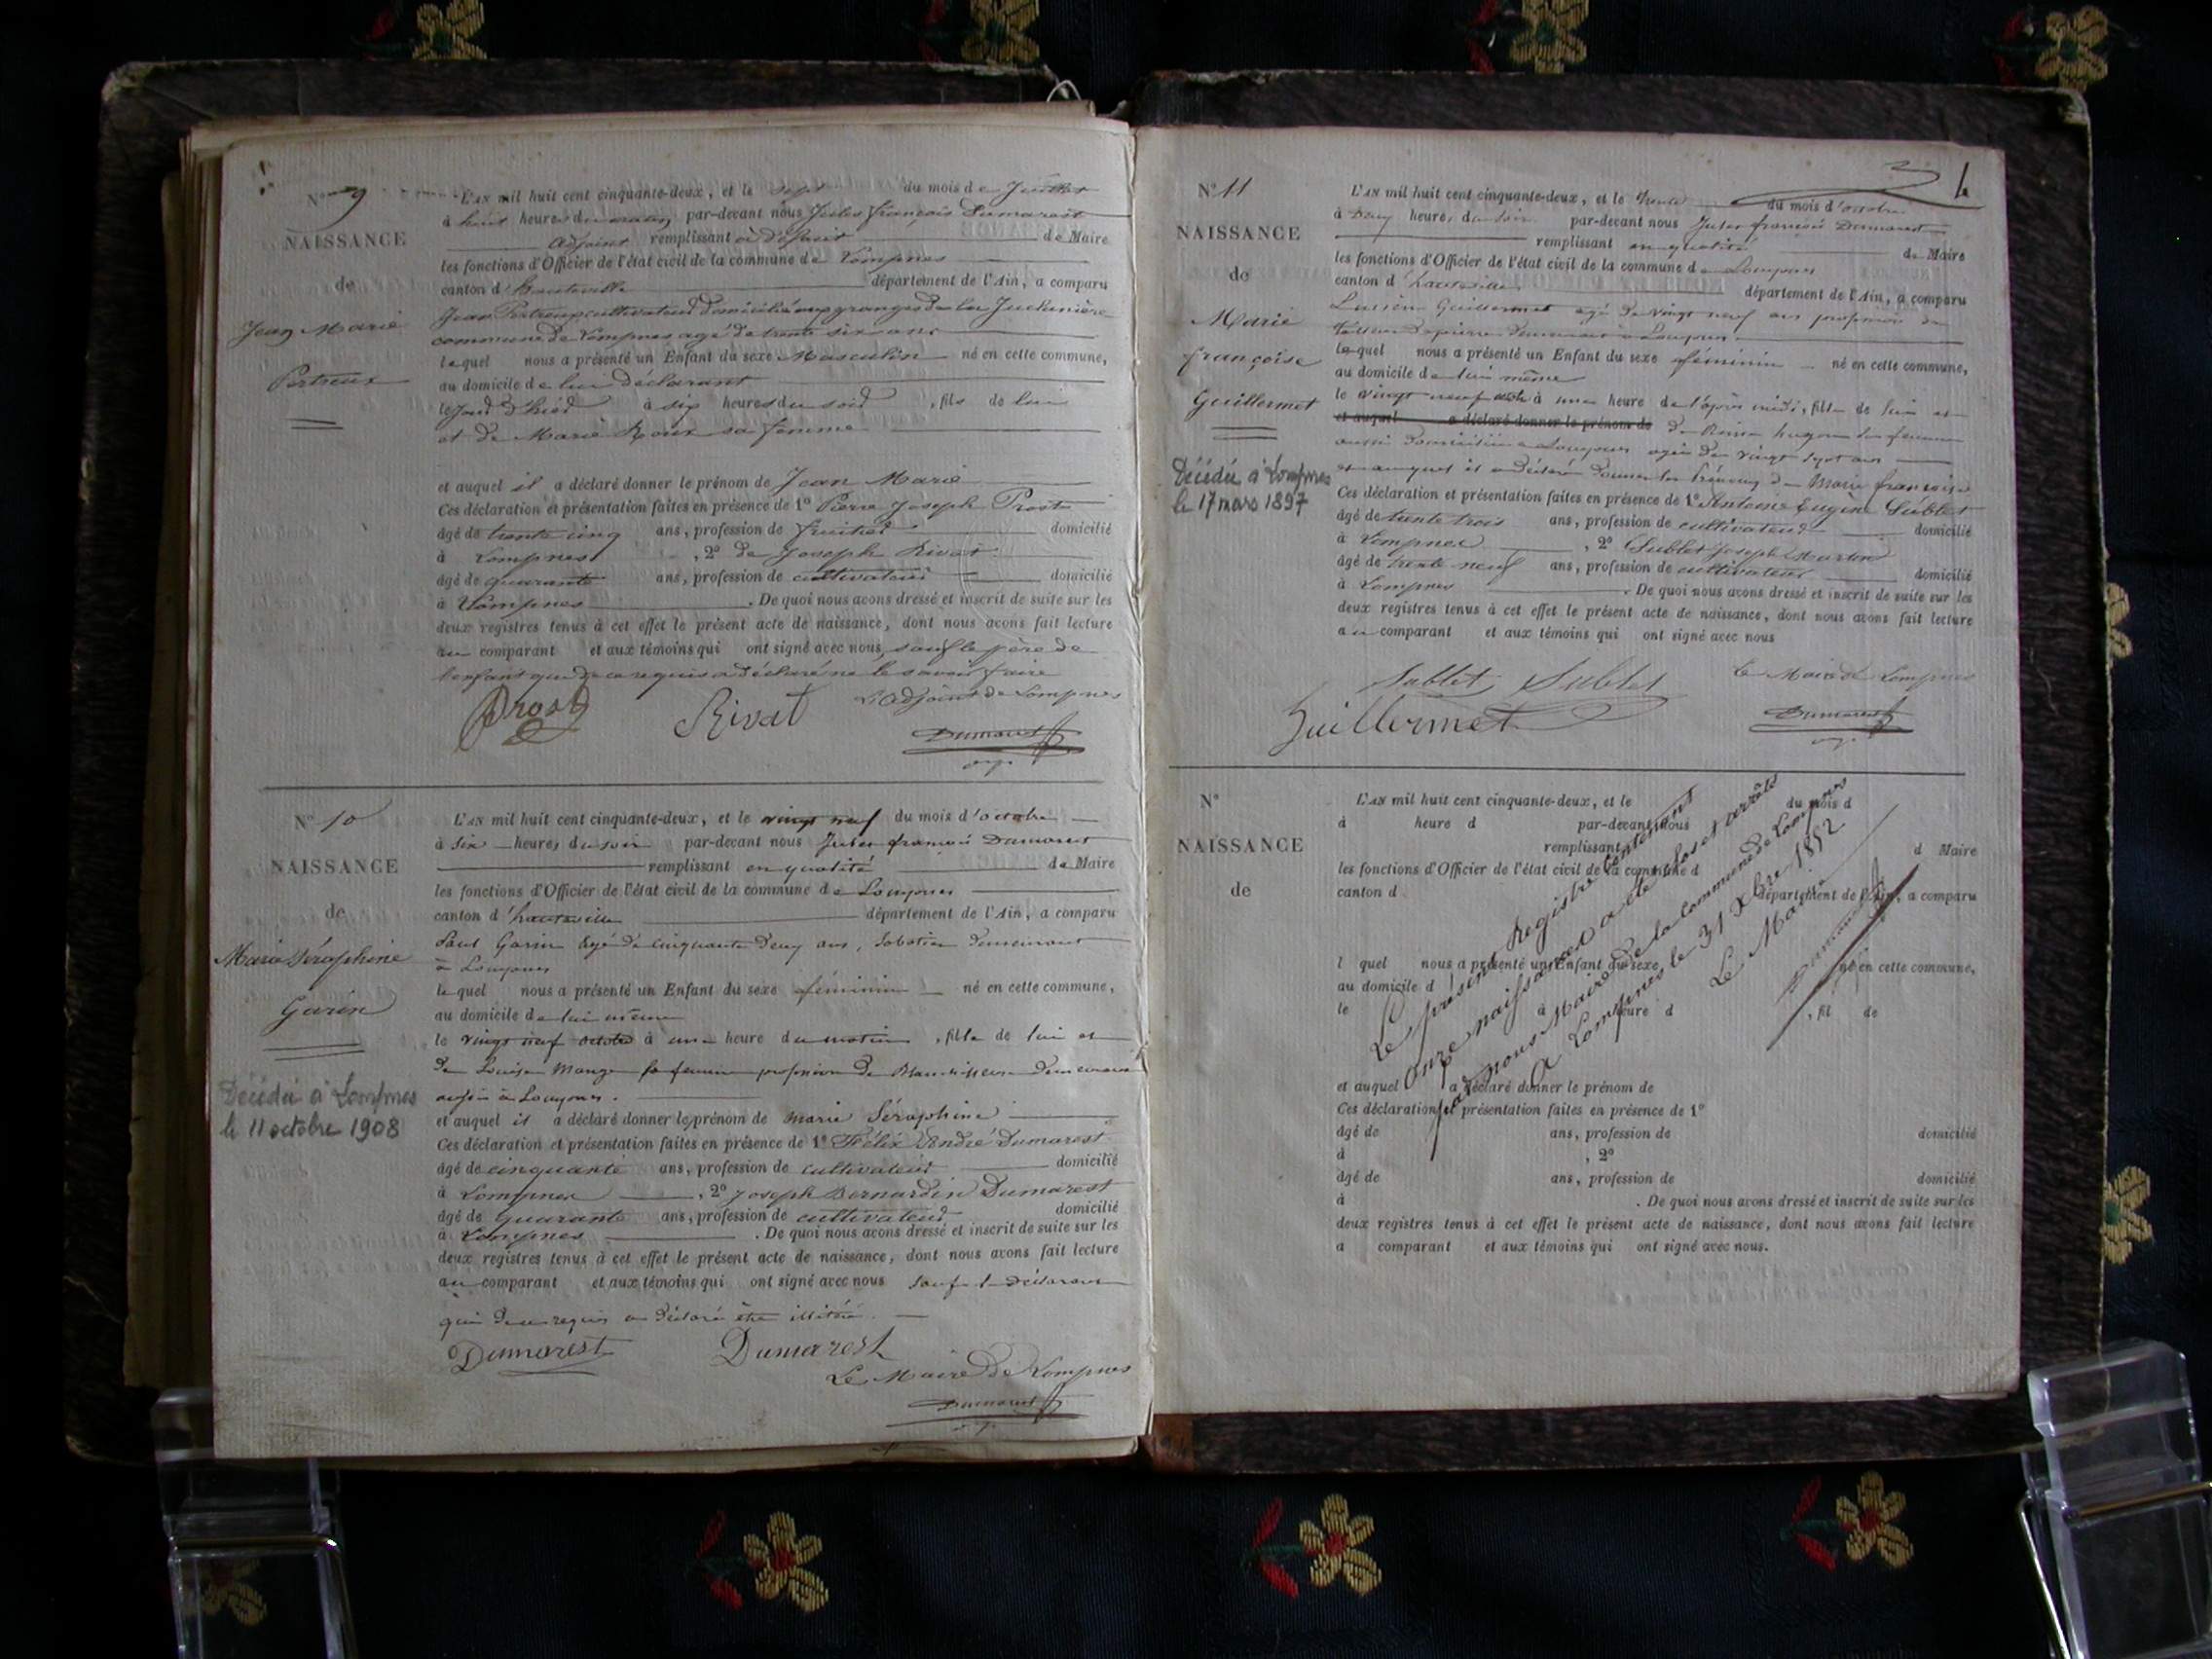 N° 9
NAISSANCE
de
Jean Marie
Pertreux
L'AN mil huit cent cinquante-deux, et le sept du mois de Juillet
à huit heures du matin par-devant nous Jules François Dumarest
adjoint remplissant à défaut de Maire
les fonctions d'Officier de l'état civil de la commune de Lompnes
canton d'hauteville département de l'Ain, a comparu
Jean Pertreux cultivateur domicilié aux granges de la
commune de Lompnes agé de trente six ans
lequel nous a présenté un Enfant du sexe Masculin né en cette commune,
au domicile de lui déclarant
le jour d'hier à six heures du soir, fils de lui
et de Marie Roux sa femme
et auquel il a déclaré donner le prénom de Jean Marie
Ces déclaration et présentation faites en présence de 1° Pierre Joseph Prost
âgé de trente cinq ans, profession de fruitier domicilié
à Lompnes, 2° de Joseph Rivat
âgé de quarante ans, profession de cultivateur domicilié
à Lompnes. De quoi nous avons dressé et inscrit de suite sur les
deux registres tenus à cet effet le présent acte de naissance, dont nous avons fait lecture
au comparant et aux témoins qui ont signé avec nous, sauf le père de
l'enfant qui de ce requis a déclaré ne le savoir faire
Prost Rivat L'adjoint de Lompnes
Dumarest
N° 10
NAISSANCE
de
Marie Séraphine
Garin
Décédée à Lompnes
le 11 octobre 1908
L'AN mil huit cent cinquante-deux, et le vingt neuf du mois d'octobre
à six heures du soir par-devant nous Jules françois Dumarest
remplissant en qualité de Maire
les fonctions d'Officier de l'état civil de la commune de Lompnes
canton d'hauteville département de l'Ain, a comparu
Garin agé de cinquante deux ans, Sabotier demeurant
à Lompnes
lequel nous a présenté un Enfant du sexe féminin né en cette commune,
au domicile de lui même
le vingt neuf octobre à une heure du matin, fille de lui et
de Louise sa femme profession de Blanchisseuse demeurant
aussi à Lompnes.
et auquel il a déclaré donner le prénom de marie Séraphine
Ces déclaration et présentation faites en présence de 1° Félix André Dumarest
âgé de cinquante ans, profession de cultivateur domicilié
à Lompnes, 2° Joseph Bernardin Dumarest
âgé de quarante ans, profession de cultivateur domicilié
à Lompnes. De quoi nous avons dressé et inscrit de suite sur les
deux registres tenus à cet effet le présent acte de naissance, dont nous avons fait lecture
au comparant et aux témoins qui ont signé avec nous sauf le déclarant
qui de ce requis a déclaré être illitéré.
Dumarest Dumarest
Le Maire de Lompnes
Dumarest
N° 11
NAISSANCE
de
Marie
françoise
Guillermet
Décédée à Lompnes
le 17 mars 1897
L'AN mil huit cent cinquante-deux, et le trente du mois d'octobre
à Deux heures du soir par-devant nous Jules françois Dumarest
remplissant en qualité de Maire
les fonctions d'Officier de l'état civil de la commune de Lompnes
canton d'hauteville département de l'Ain, a comparu
Guillermet agé de vingt neuf ans profession de
tailleur de pierre demeurant à Lompnes
lequel nous a présenté un Enfant du sexe féminin né en cette commune,
au domicile de lui même
le vingt neuf à une heure de l'après midi, fille de lui et
et auquel a déclaré donner le prénom de de sa femme
aussi domiciliée à Lompnes agée de vingt sept ans
et auquel il a déclaré donner les prénoms de Marie françoise
Ces déclaration et présentation faites en présence de 1° Antoine Eugène Sublet
âgé de trente trois ans, profession de cultivateur domicilié
à Lompnes, 2° Sublet Joseph Martin
âgé de trente neuf ans, profession de cultivateur domicilié
à Lompnes. De quoi nous avons dressé et inscrit de suite sur les
deux registres tenus à cet effet le présent acte de naissance, dont nous avons fait lecture
au comparant et aux témoins qui ont signé avec nous
Sublet Sublet Le Maire de Lompnes
Guillermet Dumarest
N°
NAISSANCE
de
L'AN mil huit cent cinquante-deux, et le du mois d
à heure d par-devant nous
remplissant d Maire
les fonctions d'Officier de l'état civil de la commune d
canton d département de l'Ain, a comparu
l quel nous a présenté un Enfant du sexe né en cette commune,
au domicile d
le à heure d , fil de
et auquel a déclaré donner le prénom de
Ces déclaration et présentation faites en présence de 1°
âgé de ans, profession de domicilié
à , 2°
âgé de ans, profession de domicilié
à . De quoi nous avons dressé et inscrit de suite sur les
deux registres tenus à cet effet le présent acte de naissance, dont nous avons fait lecture
a comparant et aux témoins qui ont signé avec nous.
Le présent Registre contenant
onze naissances a été clos et arrêté
par nous Maire de la commune de Lompnes
à Lompnes le 31 Xbre 1852
Le Maire
Dumarest